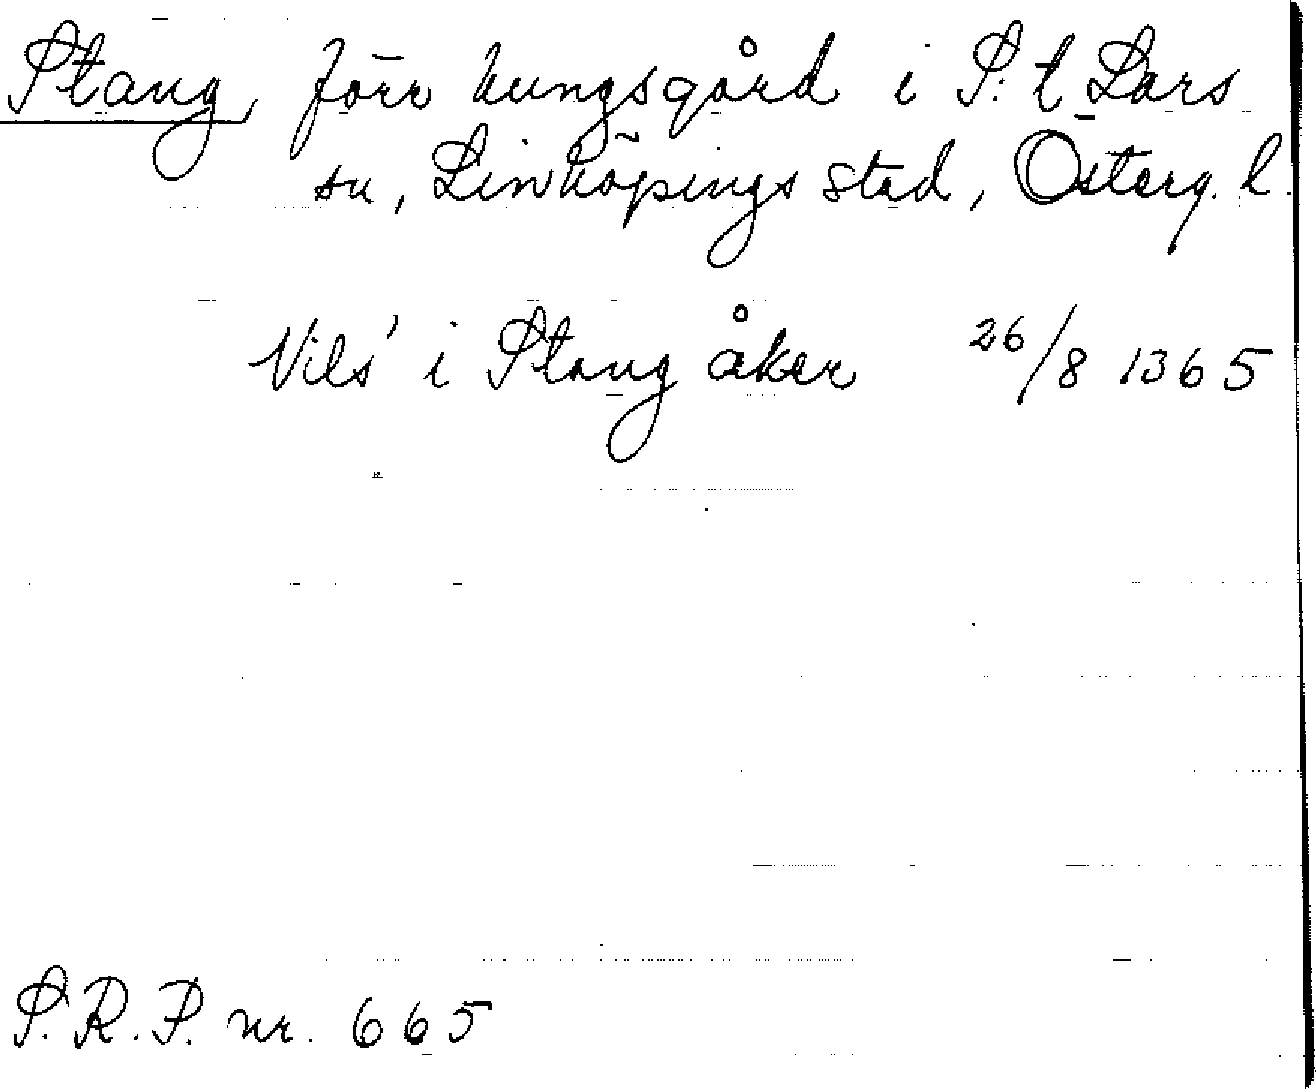 Stång, förr kungsgård i S:t Lars
sn, Linköpings stad, Österg. l.
Nils' i Stang åker 26/8 1365
S.R.P. nr. 665